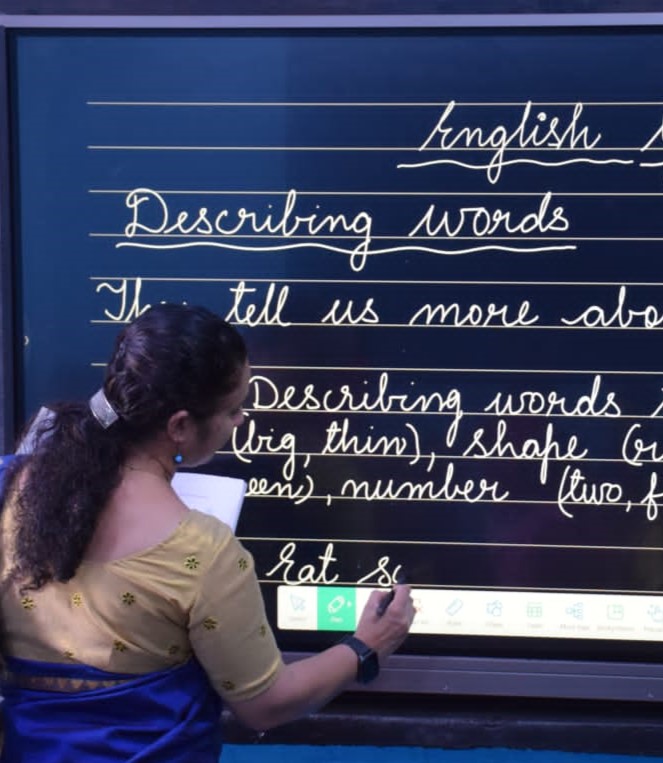 English
Describing words
tell us more abo
Describing words
(big, thin), shape
een), number (two, f
Eat so